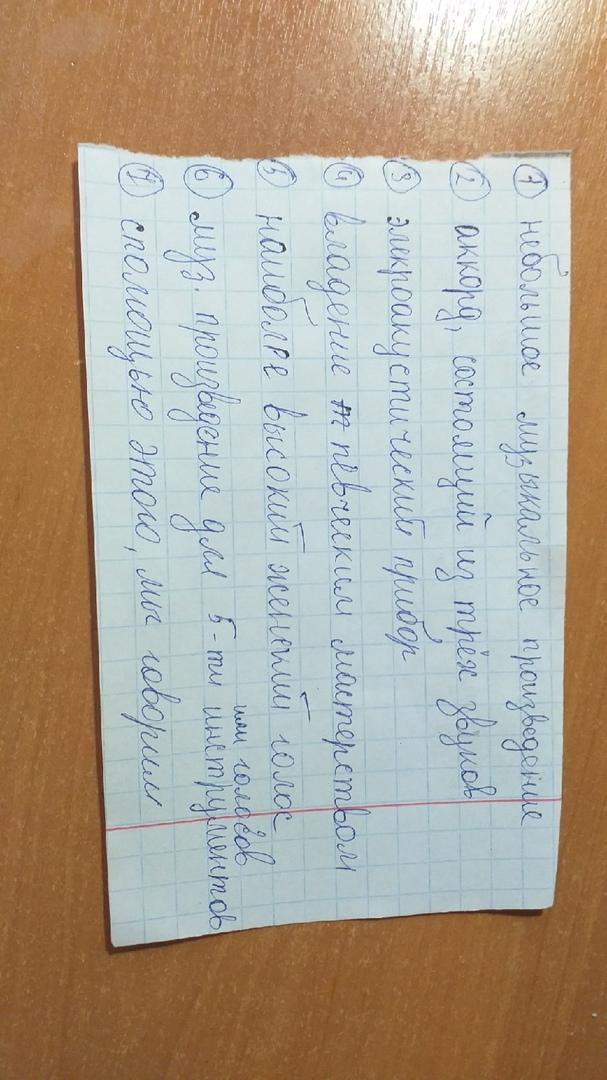 ① небольшое музыкальное произведение
② аккорд, состоящий из трёх звуков
③ элекроакустический прибор
④ владение певческим мастерством
⑤ наиболее высокий женский голос
⑥ муз. произведение для 5-ти инструментов
или голосов
⑦ спомощью этого, мы говорим